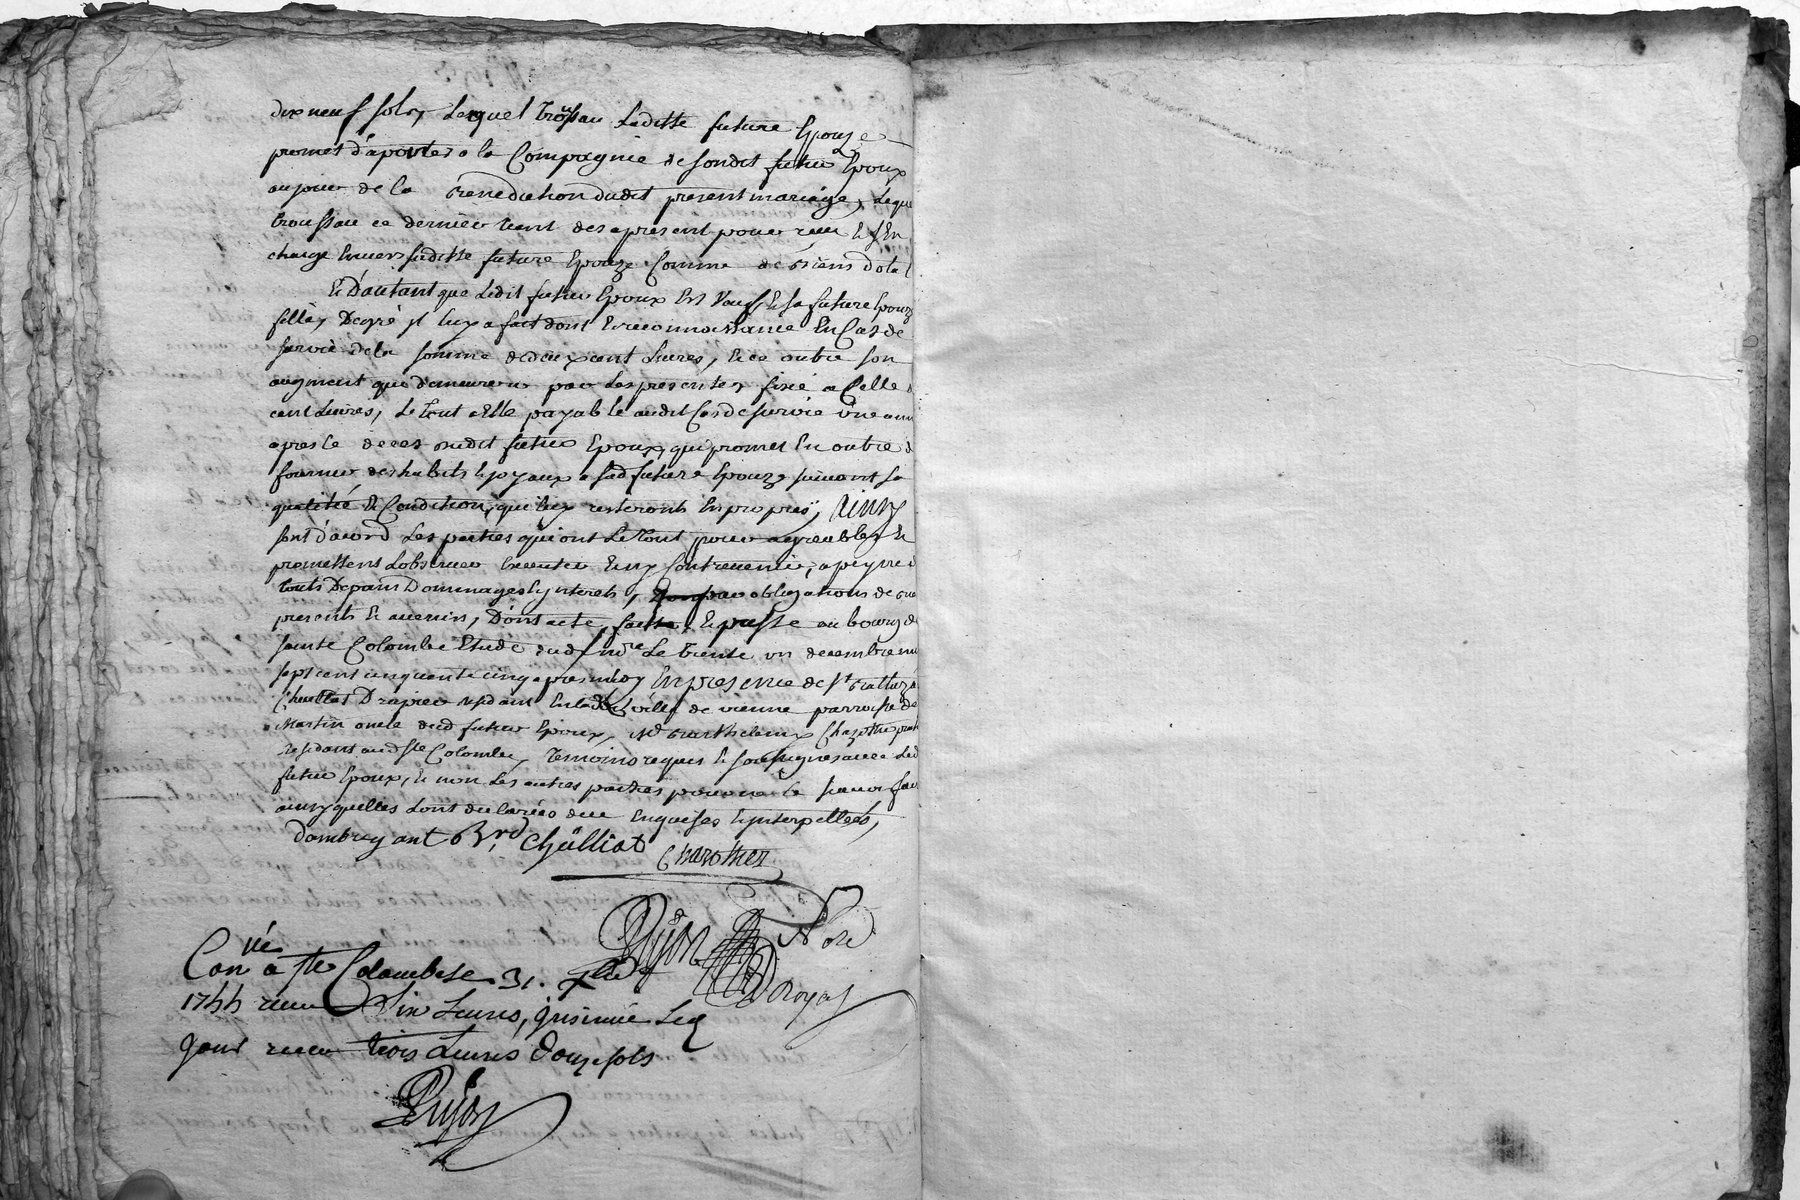 dix neuf sols, Lequel trousau Laditte future Epouze
promet d'aporter a la Compagnie de sondit futur Epoux
au jour de la benediction dudit present mariage, Leque
trousseau ce dernier tient des apresent pour receu Et s'En
charge Envers saditte future Epouze Comme de biens dota
Et D'autant que Ledit futur Epoux Est Veuf, Et sa future Epouze
fille, De gré jl luy a fait dont Et reconnoissance En Cas de
survie de la somme de deux cent Livres, Et ce outre son
augment qui demeurera par Les presentes fixé a Celle d
cent Livres, Le tout a Elle payable audit Cas de survie une ann
apres le deces dudit futur Epoux, qui promet En outre d
fournir des habits Et joyaux a sad future Epouze suivant sa
qualitée Et Condition, qui luy resteront En propres, Ainsy
sont d'acord Les parties qui ont Le tout pour agreable, Et
promettent L'observer Executer Et n'y Contrevenir, a peyne d
touts Depans Dommages Et jnterets, obligations de
presents Et avenirs, Dont acte, fait Et passé au bourg de
sainte Colombe Etude dud nore Le trente un decembre mi
sept cent cinquante cinq apres midy En presence de Sr Baltaza
Chulliat Drapier residant En lad ville de vienne parroisse de
Martin oncle dud futur Epoux, Et Barthelemy Chazottier prat
residant aud ste Colombe, Temoins requis Et soussignes avec Led
futur Epoux, Et non Les autres parties pour ne le sçavoir fai
ainsy qu'elles L'ont declarées de ce Enquises Et jnterpellées,
Dambreyant Brd Chülliat
Chazottier
Pujos Nore
Royal
Con.lé a Ste Colombe le 31. Xbre
1755 receu six Livres, jnsinué Led
jour receu trois Livres Douze sols
Pujos